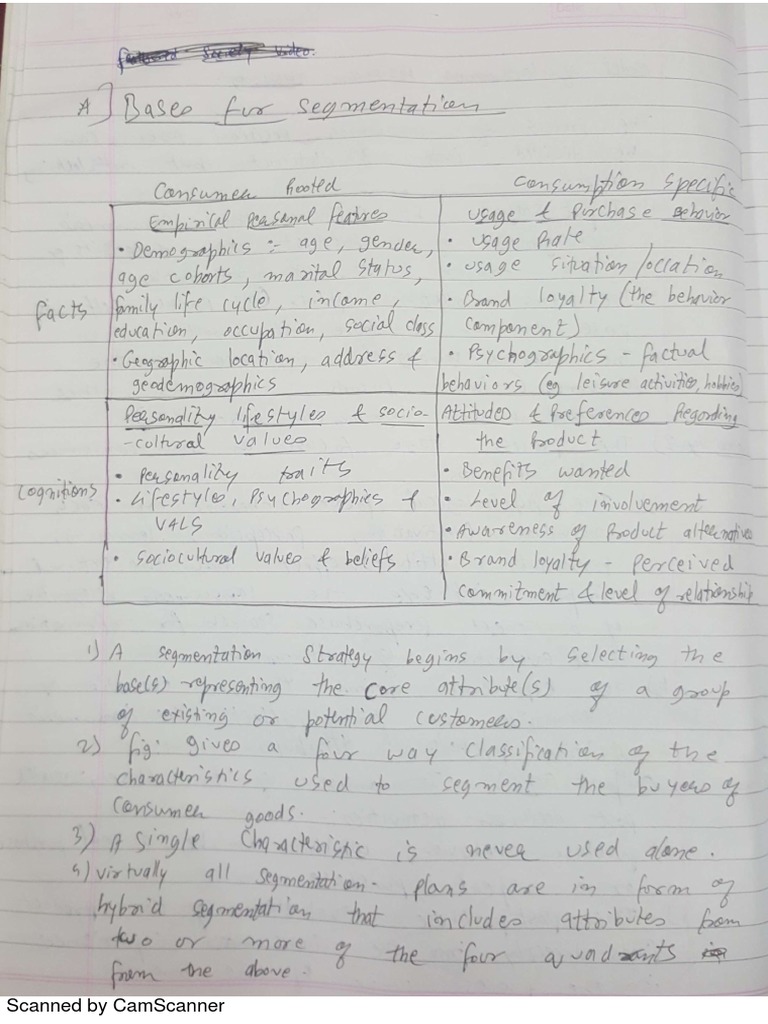 A] Bases for segmentation
Consumer Rooted
Consumption Specific
Facts
Empirical Personal features
• Demographics :- age, gender,
age cohorts, marital status,
family life cycle, income,
education, occupation, social class
• Geographic location, address &
geodemographics
Usage & Purchase Behavior
• usage Rate
• usage situation/occation
• Brand loyalty (the behavior
component)
• Psychographics - factual
behaviors (eg leisure activities, hobbies)
Cognitions
Personality lifestyles & socio-
-cultural values
• Personality traits
• Lifestyles, Psychographics &
VALS
• Sociocultural values & beliefs
Attitudes & Preferences Regarding
the Product
• Benefits wanted
• Level of involvement
• Awareness of Product alternatives
• Brand loyalty - perceived
commitment & level of relationship
1) A segmentation strategy begins by selecting the
base(s) representing the core attribute(s) of a group
of existing or potential customers.
2) fig: gives a four way classification of the
characteristics used to segment the buyers of
consumer goods.
3) A single Characteristic is never used alone.
4) virtually all segmentation plans are in form of
hybrid segmentation that includes attributes from
two or more of the four quadrants
from the above.
Scanned by CamScanner